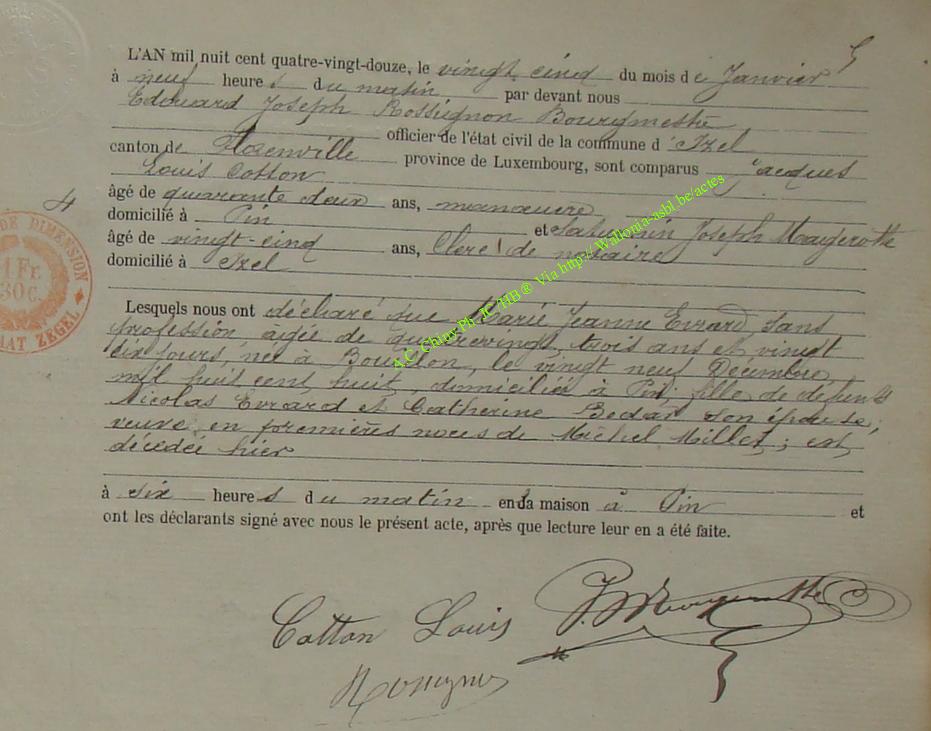 5
L'AN mil huit cent quatre-vingt-douze, le vingt cinq du mois de Janvier
à neuf heures du matin par devant nous
Edouard Joseph Rossignon Bourgmestre
officier de l'état civil de la commune d'Izel
canton de Florenville province de Luxembourg, sont comparus Jacques
Louis Cotton
âgé de quarante deux ans, manœuvre
domicilié à Pin et Saturnin Joseph Maugerotte
âgé de vingt-cinq ans, Clerc de notaire
domicilié à Izel
Lesquels nous ont déclaré que Marie Jeanne Evrard, sans
profession, âgée de quatrevingt trois ans et vingt
six jours, née à le vingt neuf Décembre
mil huit cent huit, domiciliée à Pin, fille de défunts
Nicolas Evrard et Catherine Bedan son épouse,
veuve en premières noces de Michel Millet; est
décédée hier
à six heures du matin en la maison à Pin et
ont les déclarants signé avec nous le présent acte, après que lecture leur en a été faite.
Cotton Louis
Rossignon
4
DE DIMENSION
1 Fr.
30 c.
MAT ZEGEL
A.C. Chiny Ph JC HB® Via http://Wallonia-asbl.be/actes